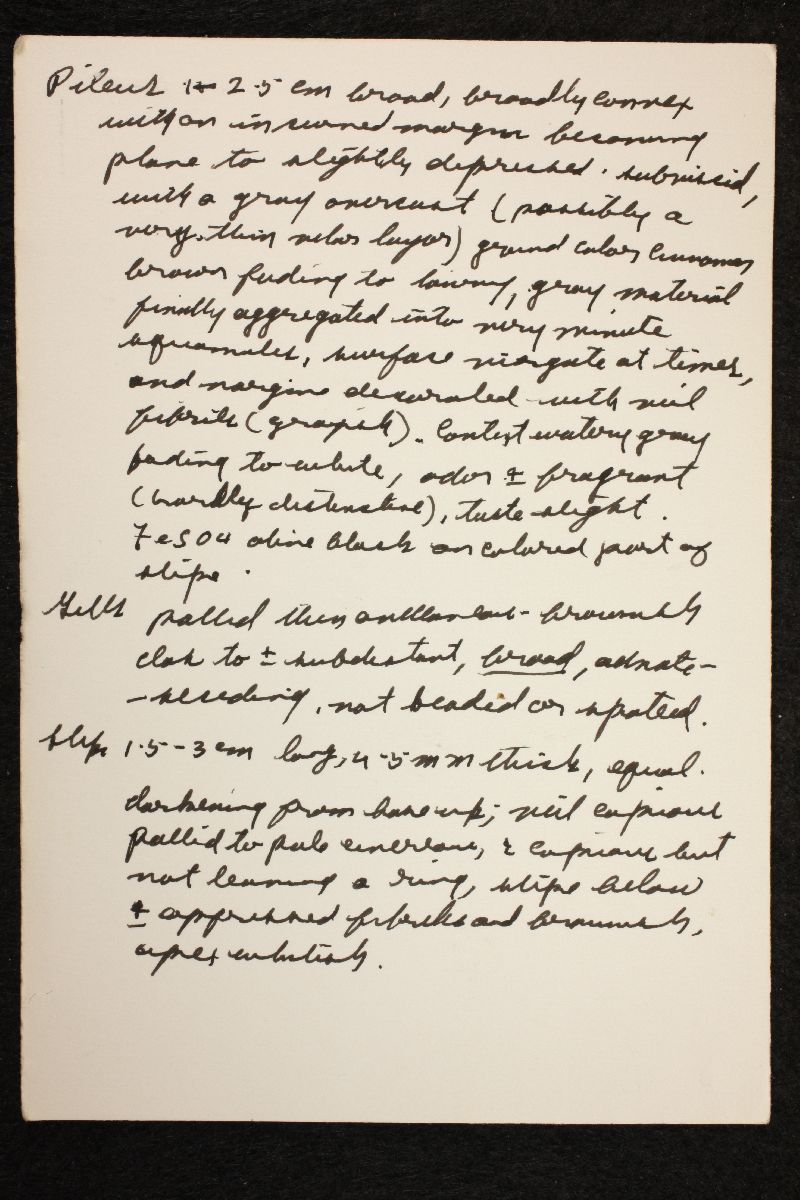 Pileus 1-2.5 cm broad, broadly convex
with an incurved margin becoming
plane to slightly depressed. subviscid,
with a gray overcast (possibly a
very thin velar layer) ground color cinnamon
brown fading to tawny, gray material
finally aggregated into very minute
squamules, surface virgate at times,
and margin decorated with veil
fibrils (grayish). Context watery gray
fading to white, odor ± fragrant
(hardly distinctive), taste slight.
FeSO4 olive black on colored part of
stipe.
Gills pallid then avellaneous-brownish
close to ± subdistant, broad, adnate-
-seceding, not beaded or spotted.
Stipe 1.5-3 cm long, 4-5 mm thick, equal.
darkening from base up; veil copious
pallid to pale cinereous, ± copious but
not leaving a ring, stipe below
± appressed fibrils and brownish,
apex whitish.